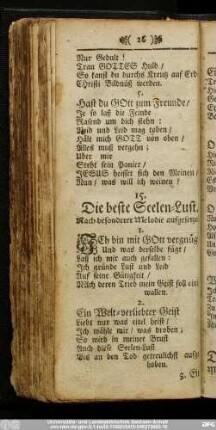 ( 26 )
Nur Gedult!
Trau GOTTES Huld/
So kanst du durchs Kreutz auf Erd
Christi Bildnüß werden.
5.
Hast du GOtt zum Freunde/
Je so laß die Feinde
Rasend um dich stehn:
Neid und Leid mag toben/
Hält mich GOTT von oben/
Alles muß vergehn;
Uber mir
Steht sein Panier/
JESUS heisset sich den Meinen/
Nun/ was will ich weinen?
15.
Die beste Seelen-Lust.
Nach besonderer Melodie aufgesetzt
1.
ICh bin mit GOtt vergnüg
Und was derselbe fügt/
Laß ich mir auch gefallen:
Ich gründe Lust und Leid
Auf seine Gütigkeit/
Nach deren Trieb mein Geist soll ein
wallen.
2.
Ein Welt-verliebter Geist
Liebt nur was eitel heist/
Ich wähle mir/ was droben;
So wird in meiner Brust
Auch diese Seelen-Lust
Bis an den Tod getreulichst aufg
hoben.
3. Ei